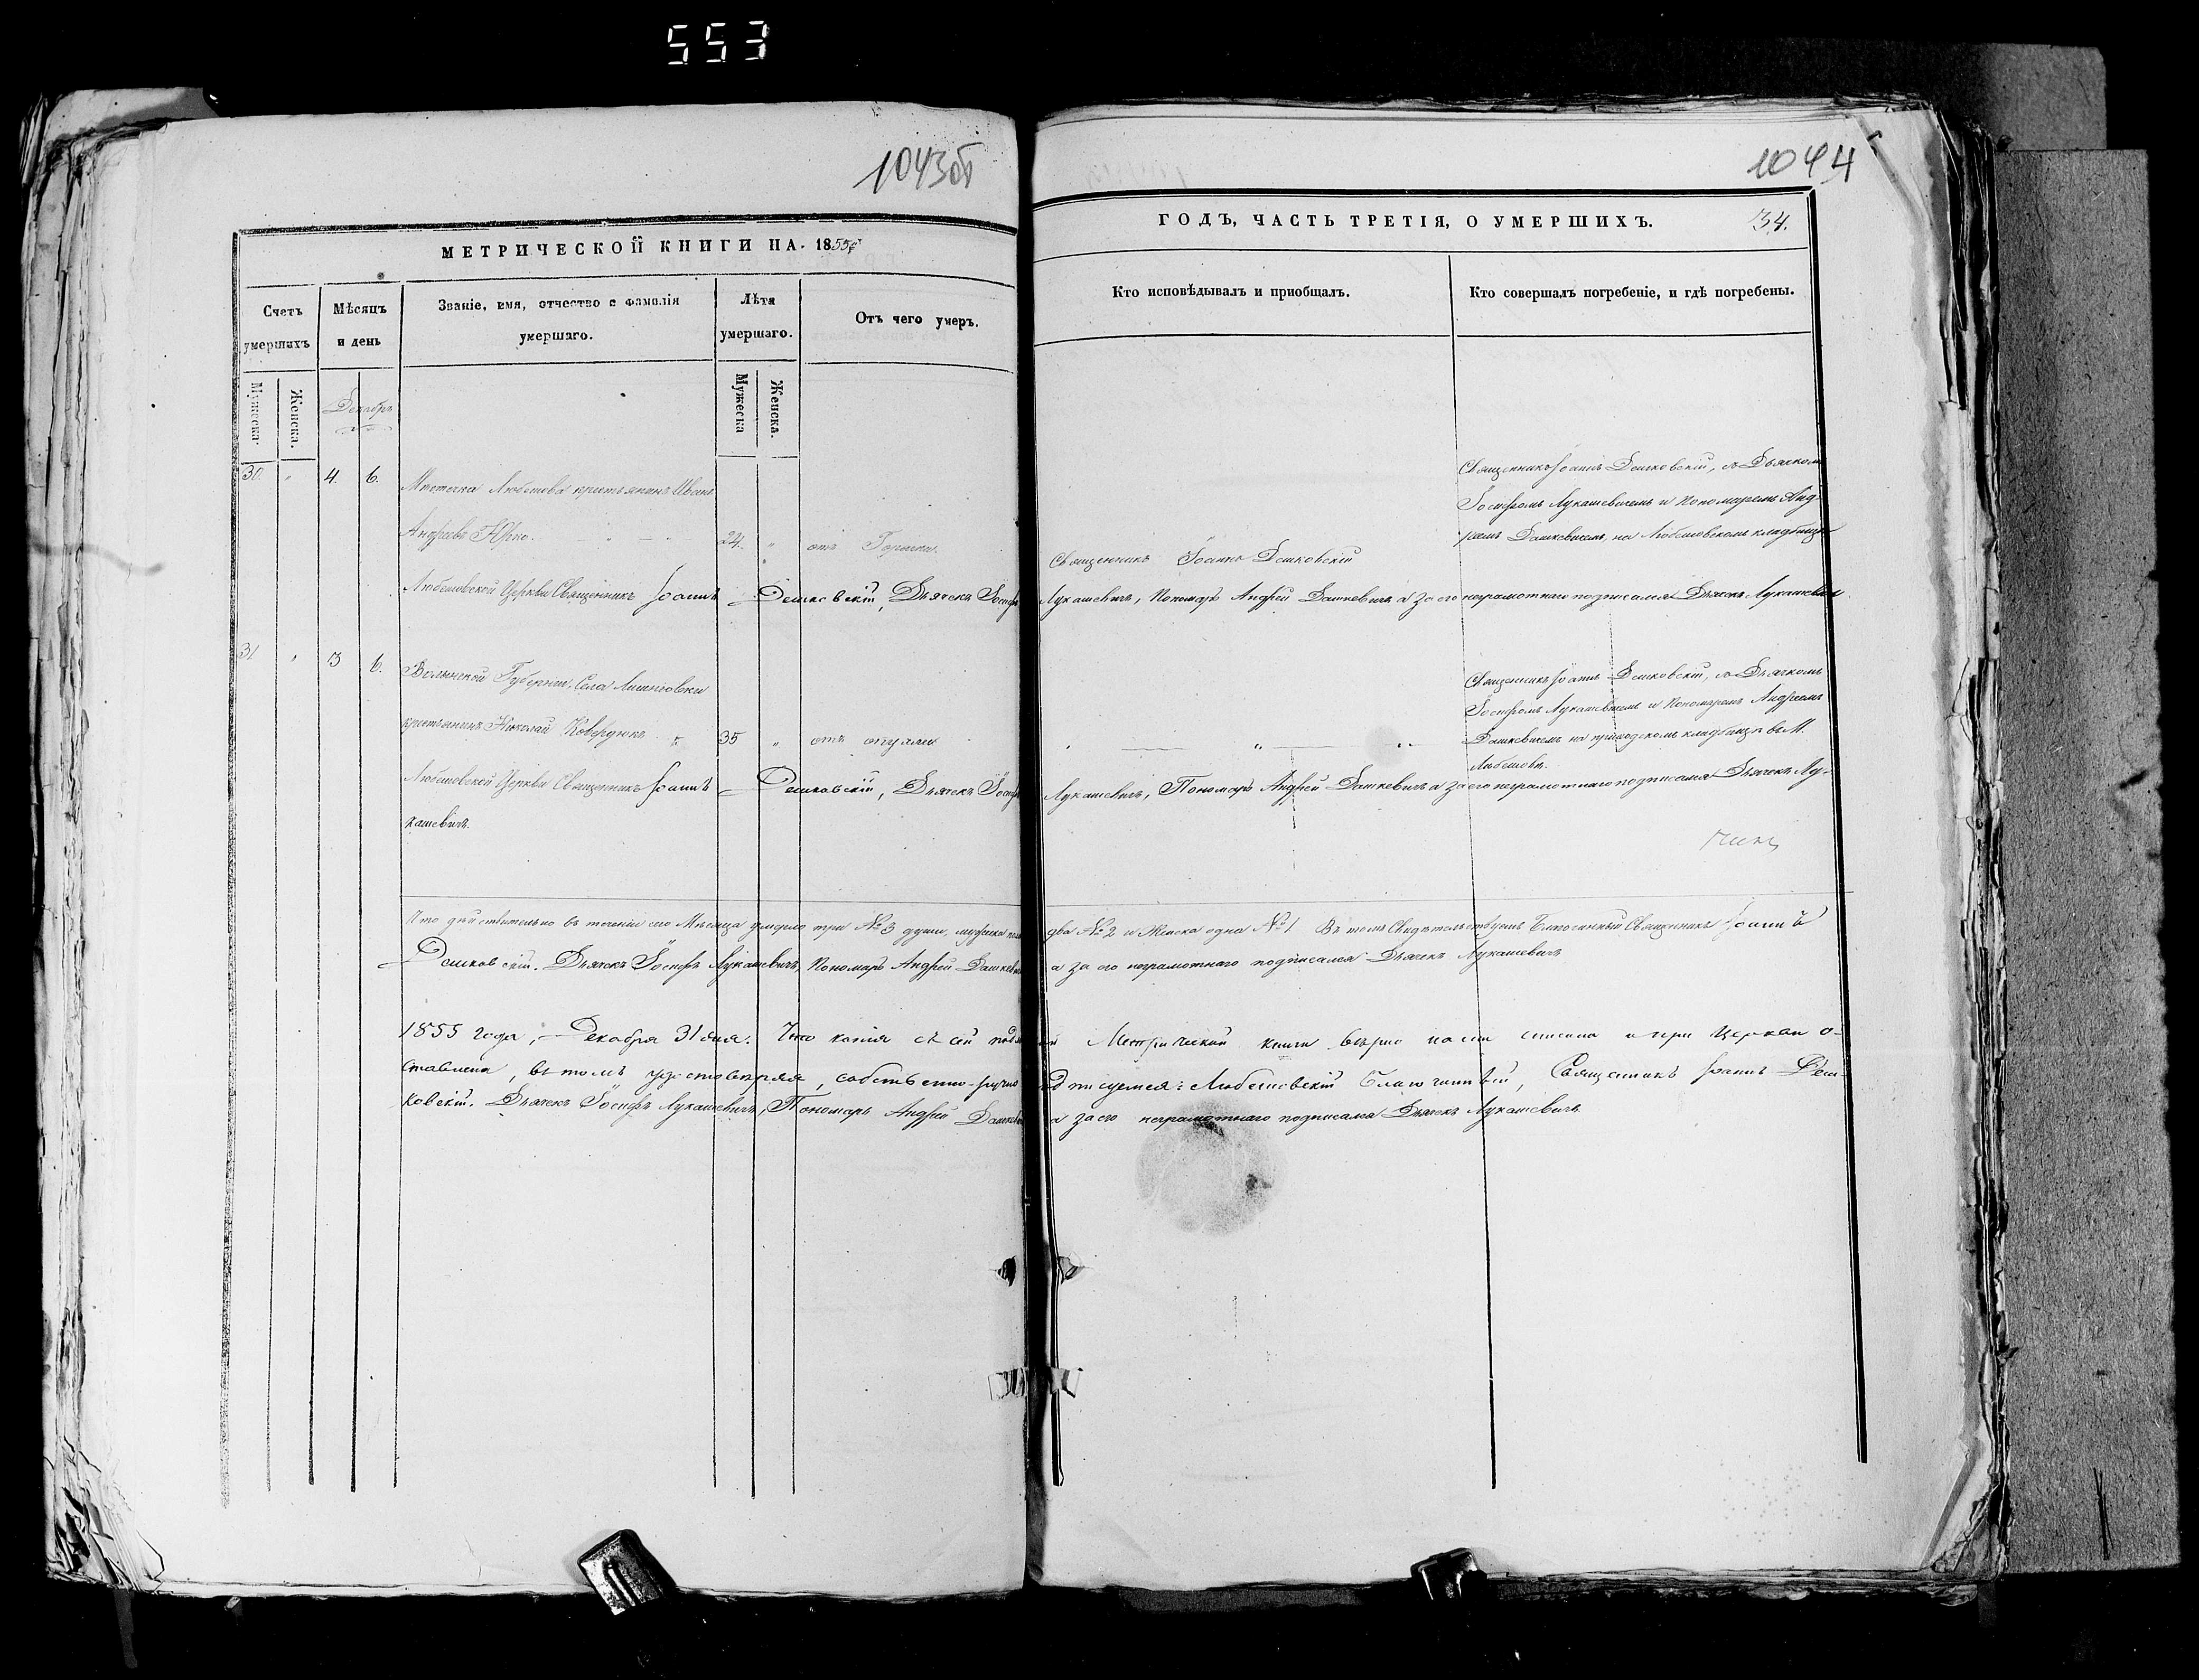 553
1043об
МЕТРИЧЕСКОЙ КНИГИ НА 1855й
Счетъ умершихъ
Мужеска.
Женска.
Мѣсяцъ и день
Декабрь
Званіе, имя, отчество и фамилія
умершаго.
Лѣта умершаго.
Мужеска
Женска.
Отъ чего умеръ.
1044
ГОДЪ, ЧАСТЬ ТРЕТІЯ, О УМЕРШИХЪ.
34.
Кто исповѣдывалъ и приобщалъ.
Кто совершалъ погребеніе, и гдѣ погребены.
30. " 4. 6.
Мѣстечка Любешова крестьянинъ Иванъ
Андреевъ Юрко. 24. " отъ Горячки.
Священникъ Іоаннъ Дешковскій
Священникъ Іоаннъ Дешковскій, съ Дьячкомъ
Іосифомъ Лукашевичемъ и Пономаремъ Анд-
реемъ Дашкевичемъ, на Любешовскомъ кладбищѣ
Любешовской Церкви Священникъ Іоаннъ Дешковскій, Дьячекъ Іосифъ Лукашевичъ, Пономарь Андрей Дашкевичъ а за его неграмотнаго подписался Дьячекъ Лукашевичъ.
31 " 3 6.
Волынской Губерніи, Села
крестьянинъ Николай Ковердюкъ 35 " отъ опухли
" " "
Священникъ Іоаннъ Дешковскій, съ Дьячкомъ
Іосифомъ Лукашевичемъ и Пономаремъ Андреемъ
Дашкевичемъ на приходскомъ кладбищѣ въ М.
Любешовѣ.
Любешовской Церкви Священникъ Іоаннъ Дешковскій, Дьячекъ Іосифъ Лукашевичъ, Пономарь Андрей Дашкевичъ а за его неграмотнаго подписался Дьячекъ Лу-
кашевичъ.
Что дѣйствительно въ теченіи сего Мѣсяца умерло три № 3 души, мужеска пола два № 2 и Женска одна № 1 Въ томъ Свидѣтельствуемъ Благочинный Священникъ Іоаннъ
Дешковскій. Дьячекъ Іосифъ Лукашевичъ, Пономарь Андрей Дашкевичъ а за его неграмотнаго подписался Дьячекъ Лукашевичъ
1855 года, Декабря 31 дня. Что копія съ сей Метрической книги вѣрно нами списана и при Церкви о-
ставлена, въ томъ удостовѣряя, собственно-ручно подписуемся: Любешовскій Благочинный, Священникъ Іоаннъ Деш-
ковскій. Дьячекъ Іосифъ Лукашевичъ, Пономарь Андрей Дашкевичъ а за его неграмотнаго подписался Дьячекъ Лукашевичъ